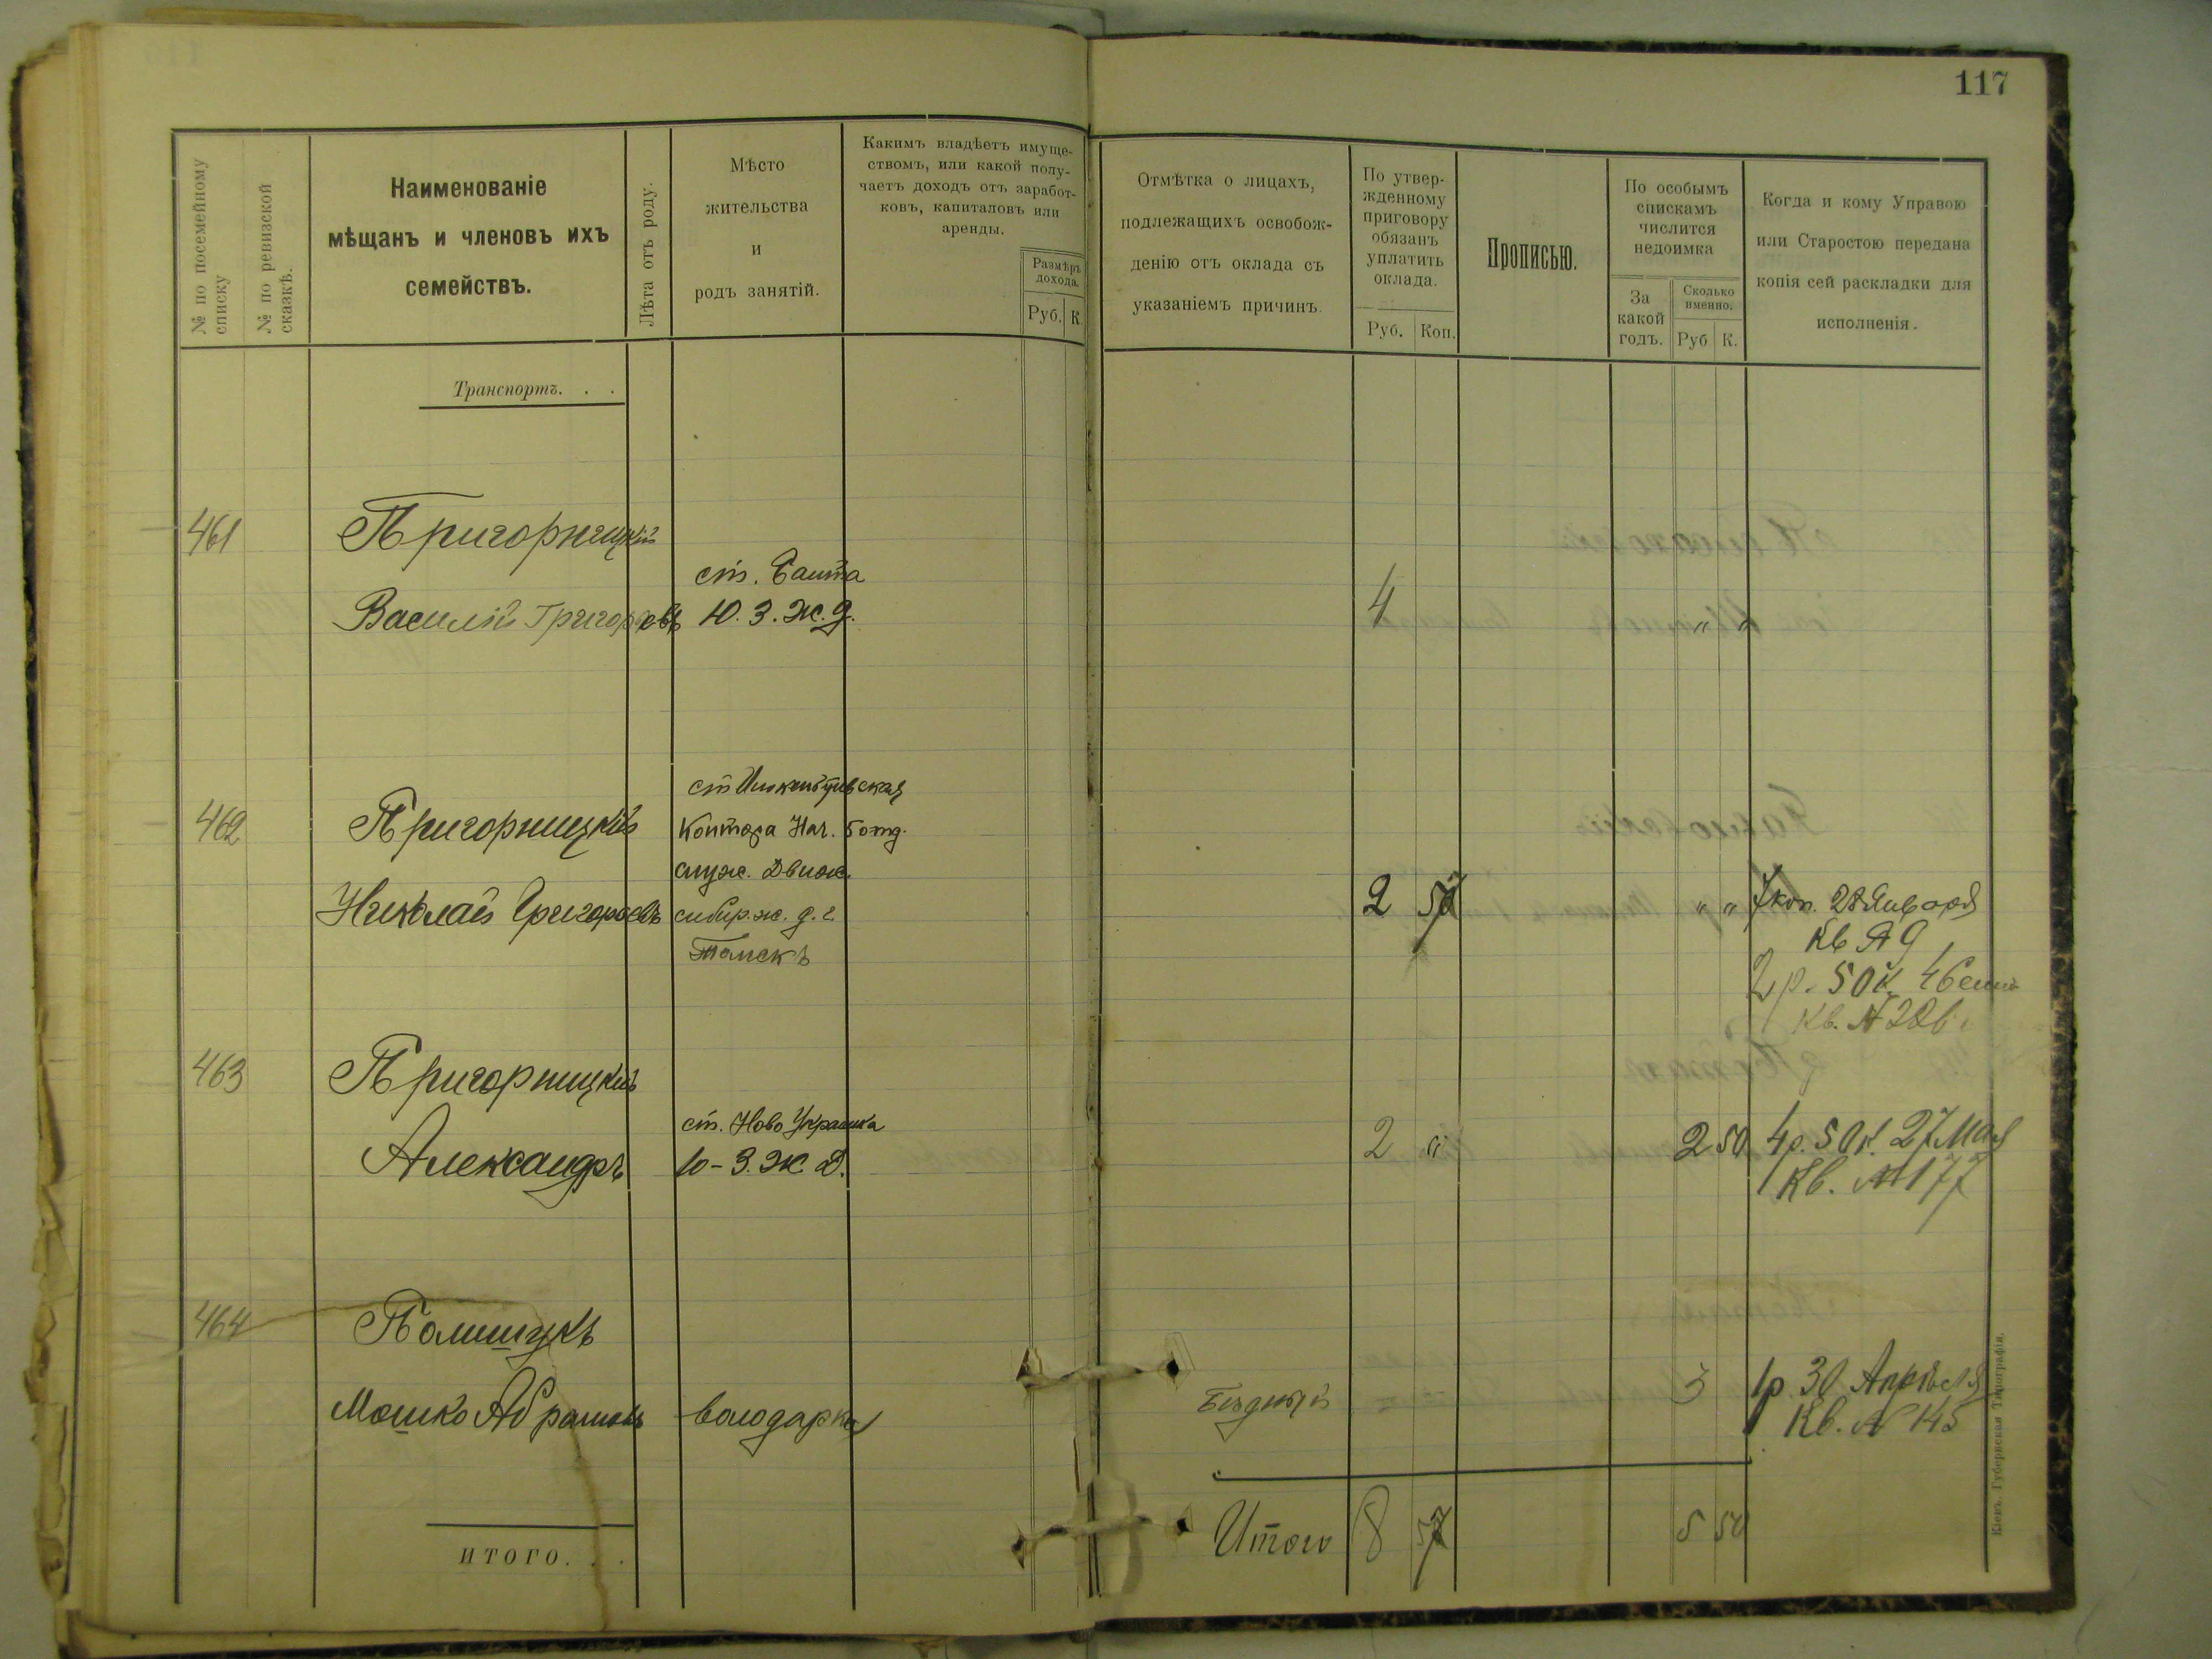 117
№ по посемейному списку
№ по ревизской сказкѣ.
Наименованіе
мѣщанъ и членовъ ихъ
семействъ.
Лѣта отъ роду.
Мѣсто
жительства
и
родъ занятій.
Какимъ владѣетъ имуще-
ствомъ, или какой полу-
чаетъ доходъ отъ заработ-
ковъ, капиталовъ или
аренды.
Размѣръ
дохода.
Руб. К.
Отмѣтка о лицахъ,
подлежащихъ освобож-
денію отъ оклада съ
указаніемъ причинъ.
По утвер-
жденному
приговору
обязанъ
уплатить
оклада.
Руб. Коп.
Прописью.
По особымъ
спискамъ
числится
недоимка
За
какой
годъ.
Сколько
именно.
Руб К.
Когда и кому Управою
или Старостою передана
копія сей раскладки для
исполненія.
Транспортъ. . .
461 Пригорницкій
ст. Балта
Василій Григорьевъ Ю. З. Ж. д. 4 " "
462 Пригорницкій
Контора Нач. 5 отд.
служ. Движ.
Николай Григорьевъ сибир. ж. д. г. 2 57 " " 7 коп. 28 Января
Томскъ Кв № 9
2 р. 50 к.
Кв. №
463 Пригорницкій
ст. Ново Украинка
Александръ Ю-З. Ж. Д. 2 " 2 50 4 р. 50 к. 27 Мая
Кв. № 177
464 Полищукъ
Мошко Абрамовъ володарка Бѣдный 3 1 р 30 Апрѣля
Кв. № 145
Итого 8 57 5 50
ИТОГО. . .
Кіевъ. Губернская Типографія.